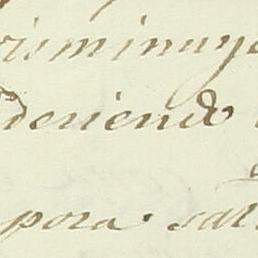 risminuye
deriendo
pora. sal